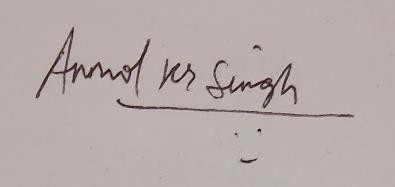 Anmol Kr Singh